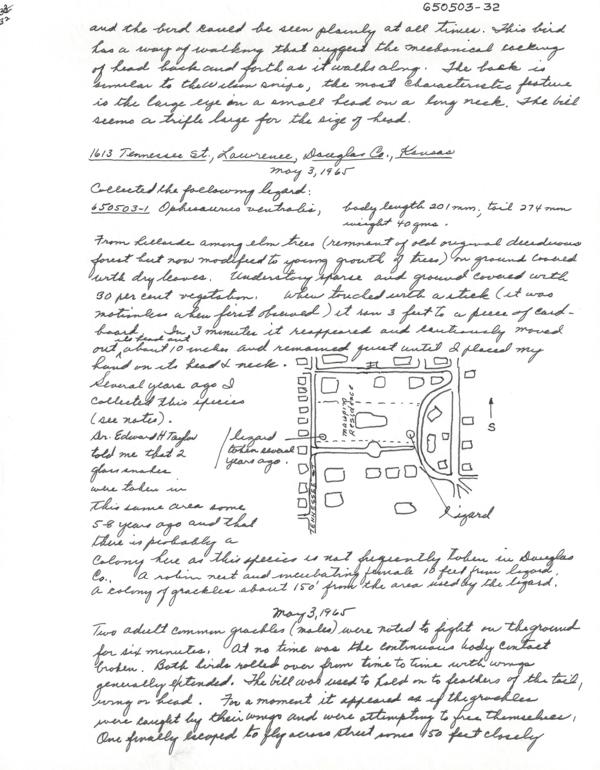 650503-32
32
and the bird could be seen plainly at all times. This bird
has a way of walking that suggest the mechanical cocking
of head back and forth as it walks along. The back is
similar to the Wilson snipe, the most characteristic feature
is the large eye in a small head on a long neck. The bill
seems a trifle large for the size of head.
1613 Tennessee St., Lawrence, Douglas Co., Kansas
May 3, 1965
Collected the following lizard:
650503-1 Ophisaurus ventralis, body length 201 mm; tail 274 mm
weight 40 gms.
From hillside among elm trees (remnant of old original deciduous
forest but now modified to young growth of trees) on ground covered
with dry leaves. Understory sparse and ground covered with
30 per cent vegetation. When touched with a stick (it was
motionless when first observed) it ran 3 feet to a piece of card-
board. In 3 minutes it reappeared and cautiously moved
its head out
out about 10 inches and remained quiet until I placed my
hand on its head & neck.
Several years ago I
collected this species
(see notes).
Dr. Edward H Taylor
told me that 2
glass snakes
were taken in
this same area some
5-8 years ago and that
there is probably a
lizard
taken several
years ago.
Maupin
Residence
TENNESSEE
S
lizard
colony here as this species is not frequently taken in Douglas
Co., A robin nest and incubating female 10 feet from lizard.
A colony of grackles about 150' from the area used by the lizard.
May 3, 1965
Two adult common grackles (males) were noted to fight on the ground
for six minutes. At no time was the continuous body contact
broken. Both birds rolled over from time to time with wings
generally extended. The bill was used to hold on to feathers of the tail,
wing or head. For a moment it appeared as if the grackles
were caught by their wings and were attempting to free themselves.
One finally escaped to fly across street some 150 feet closely